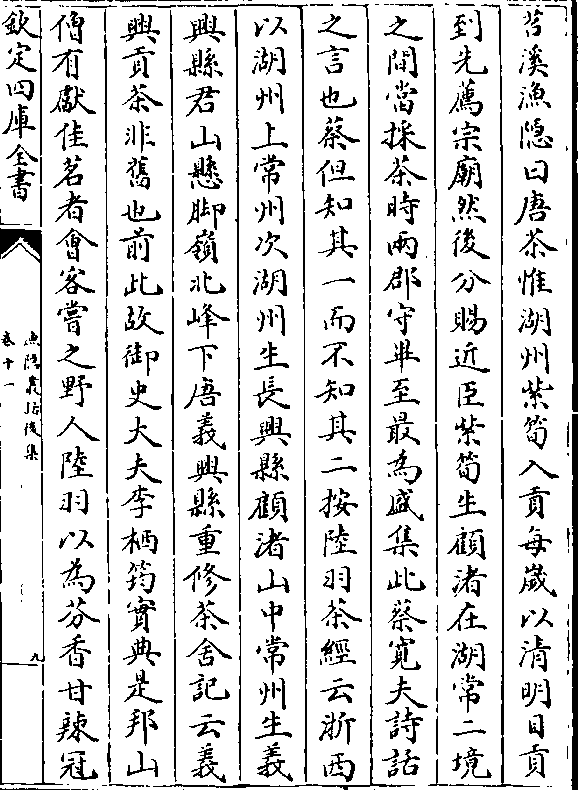 苕溪漁隱曰唐茶惟湖州紫筍入貢每歲以清明日貢
到先薦宗廟然後分賜近臣紫筍生顧渚在湖常二境
之間當採茶時兩郡守畢至最為盛集此蔡寛夫詩話
之言也蔡但知其一而不知其二按陸羽茶經云浙西
以湖州上常州次湖州生長興縣顧渚山中常州生義
興縣君山懸脚嶺北峰下唐義興縣重修茶舍記云義
興貢茶非舊也前此故御史大夫李栖筠實典是邦山
僧有獻佳茗者會客嘗之野人陸羽以為芬香甘辣冠
欽定四庫全書
漁隱叢話後集
卷十一
九